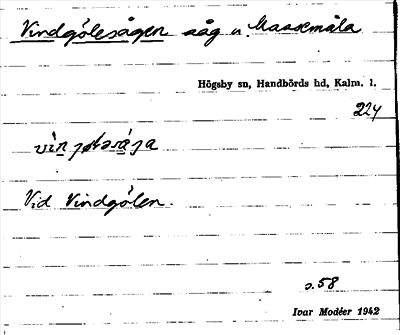 Vindgölesågen såg u. Maaxmåla
Högsby sn, Handbörds hd, Kalm. l.
224
Vid Vindgölen.
s. 58
Ivar Modéer 1942